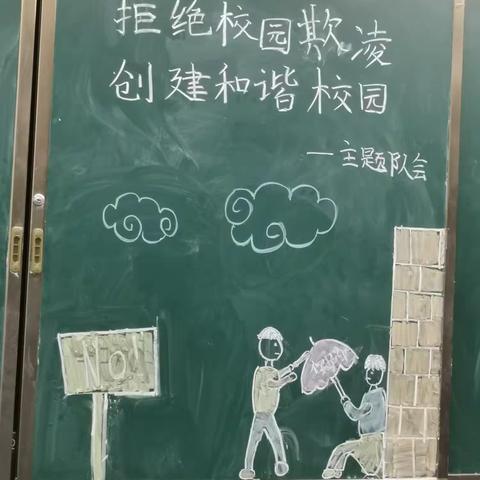 拒绝校园欺凌
创建和谐校园
—主题队会
No!